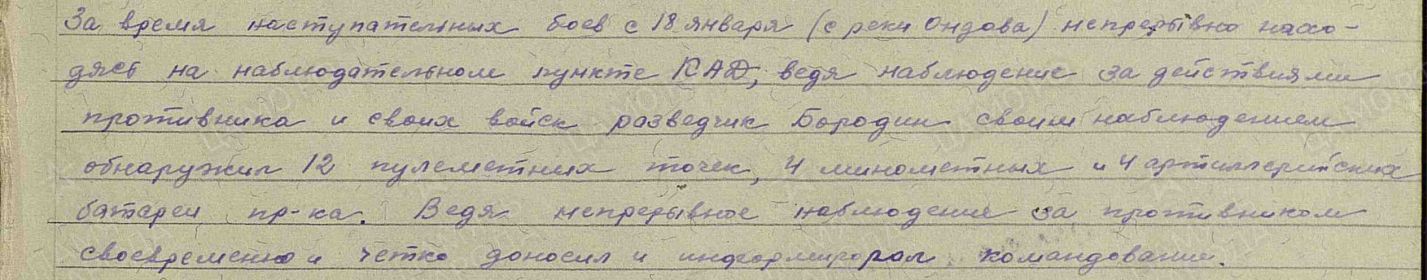 За время наступательных боев с 18 января (с реки Ондова) непрерывно нахо-
дясь на наблюдательном пункте КАД, ведя наблюдение за действиями
противника и своих войск разведчик Бородин своим наблюдением
обнаружил 12 пулеметных точек, 4 минометных и 4 артиллерийских
батареи пр-ка. Ведя непрерывное наблюдение за противником
своевременно и четко доносил и информировал командование.